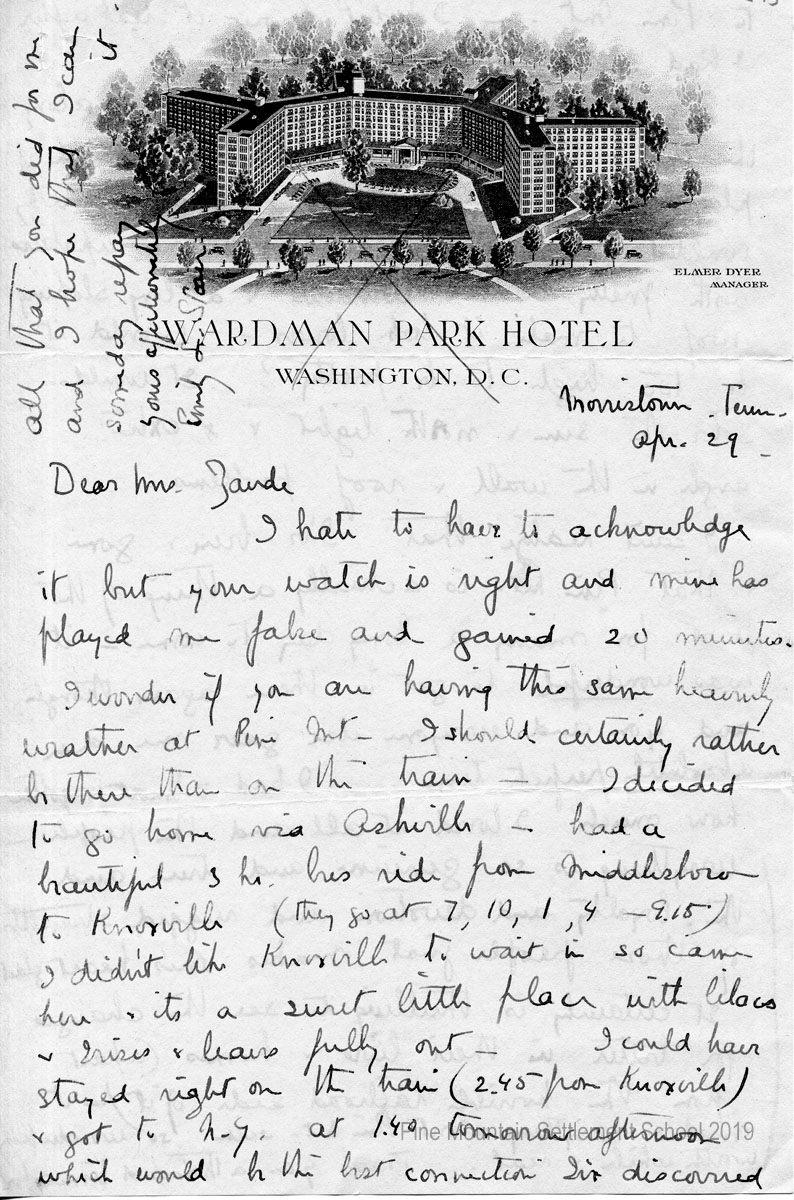 ELMER DYER
MANAGER
WARDMAN PARK HOTEL
WASHINGTON, D.C.
Morristown. Tenn.
Apr. 29
Dear Mrs. Zande
I hate to have to acknowledge
it but your watch is right and mine has
played me false and gained 20 minutes.
I wonder if you are having this same heavenly
weather at Pine Mt — I should certainly rather
be there than on the train — I decided
to go home via Asheville — had a
beautiful 3 hr. bus ride from Middlesboro
to Knoxville (they go at 7, 10, 1, 4 — 9.15)
I didn't like Knoxville to wait in so came
here & its a sweet little place with lilacs
& Irises & leaves fully out — I could have
stayed right on the train (2.45 from Knoxville)
& got to N.Y. at 1.40 tomorrow afternoon
which would be the best connection Ive discovered
all that you did for me
and I hope that I can
someday repay it.
yours affectionately
Emily
Pine Mountain Settlement School 2019